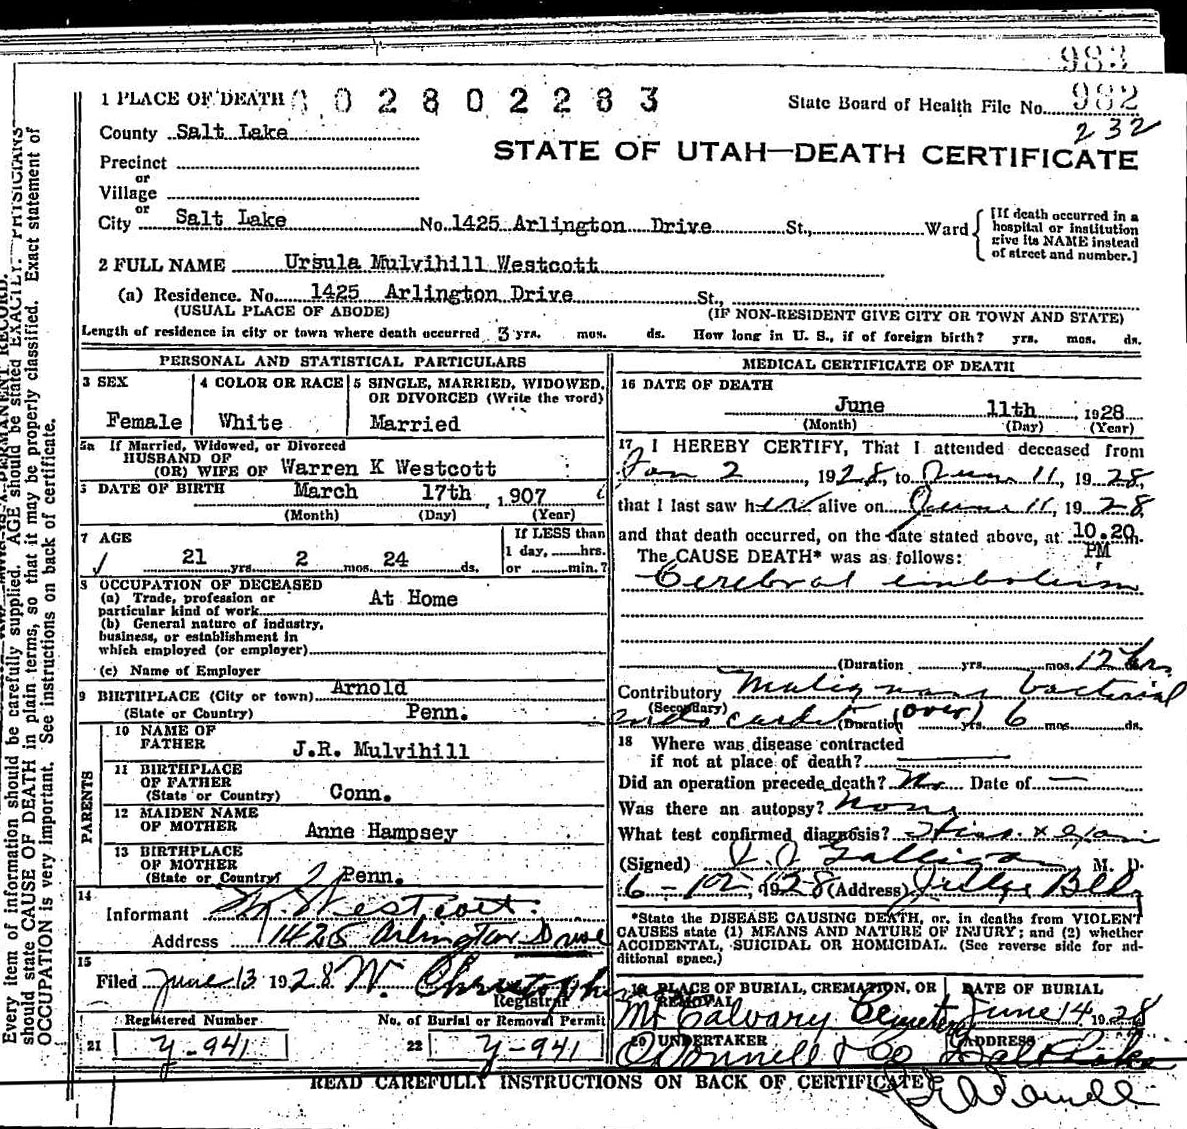 983
1 PLACE OF DEATH 0 0 2 8 0 2 2 8 3 State Board of Health File No. 982
232
County Salt Lake
STATE OF UTAH—DEATH CERTIFICATE
Precinct
or
Village
or
City Salt Lake No. 1425 Arlington Drive St., Ward
[If death occurred in a hospital or institution give its NAME instead of street and number.]
2 FULL NAME Ursula Mulvihill Westcott
(a) Residence. No. 1425 Arlington Drive St.,
(USUAL PLACE OF ABODE) (IF NON-RESIDENT GIVE CITY OR TOWN AND STATE)
Length of residence in city or town where death occurred 3 yrs. mos. ds. How long in U. S., if of foreign birth? yrs. mos. ds.
PERSONAL AND STATISTICAL PARTICULARS
3 SEX 4 COLOR OR RACE 5 SINGLE, MARRIED, WIDOWED,
OR DIVORCED (Write the word)
Female White Married
5a If Married, Widowed, or Divorced
HUSBAND OF
(OR) WIFE OF Warren K Westcott
6 DATE OF BIRTH March 17th, 1907
(Month) (Day) (Year)
7 AGE If LESS than
21 yrs. 2 mos. 24 ds. 1 day, hrs.
or min.?
8 OCCUPATION OF DECEASED
(a) Trade, profession or
particular kind of work At Home
(b) General nature of industry,
business, or establishment in
which employed (or employer)
(c) Name of Employer
9 BIRTHPLACE (City or town) Arnold
(State or Country) Penn.
PARENTS
10 NAME OF
FATHER J.R. Mulvihill
11 BIRTHPLACE
OF FATHER
(State or Country) Conn.
12 MAIDEN NAME
OF MOTHER Anne Hampsey
13 BIRTHPLACE
OF MOTHER
(State or Country) Penn.
14
Informant W. Westcott
Address 1425 Arlington Drive
15
Filed June 13 1928 W. Christopherson
Registrar
Registered Number No. of Burial or Removal Permit
21 Y-941 22 Y-941
MEDICAL CERTIFICATE OF DEATH
16 DATE OF DEATH
June 11th, 1928
(Month) (Day) (Year)
17 I HEREBY CERTIFY, That I attended deceased from
Jan 2, 1928, to June 11, 1928,
that I last saw her alive on June 11, 1928
and that death occurred, on the date stated above, at 10.20 m.
PM
The CAUSE DEATH* was as follows:
Cerebral embolism
(Duration yrs. mos. 12 hrs
Contributory Malignant bacterial
(Secondary)
endocardit (over) (Duration yrs. 6 mos. ds.
18 Where was disease contracted
if not at place of death?
Did an operation precede death? No Date of
Was there an autopsy? None
What test confirmed diagnosis? Hist. & exam
(Signed) Galligan M. D.
6-12, 1928 (Address) Judge Bldg
*State the DISEASE CAUSING DEATH, or, in deaths from VIOLENT
CAUSES state (1) MEANS AND NATURE OF INJURY; and (2) whether
ACCIDENTAL, SUICIDAL OR HOMICIDAL. (See reverse side for additional space.)
19 PLACE OF BURIAL, CREMATION, OR REMOVAL DATE OF BURIAL
Mt Calvary Cemetery June 14 1928
20 UNDERTAKER (ADDRESS
O'Donnell & Co Salt Lake
READ CAREFULLY INSTRUCTIONS ON BACK OF CERTIFICATE
Every item of information should be carefully supplied. AGE should be stated EXACTLY. PHYSICIANS
should state CAUSE OF DEATH in plain terms, so that it may be properly classified. Exact statement of
OCCUPATION is very important. See instructions on back of certificate.